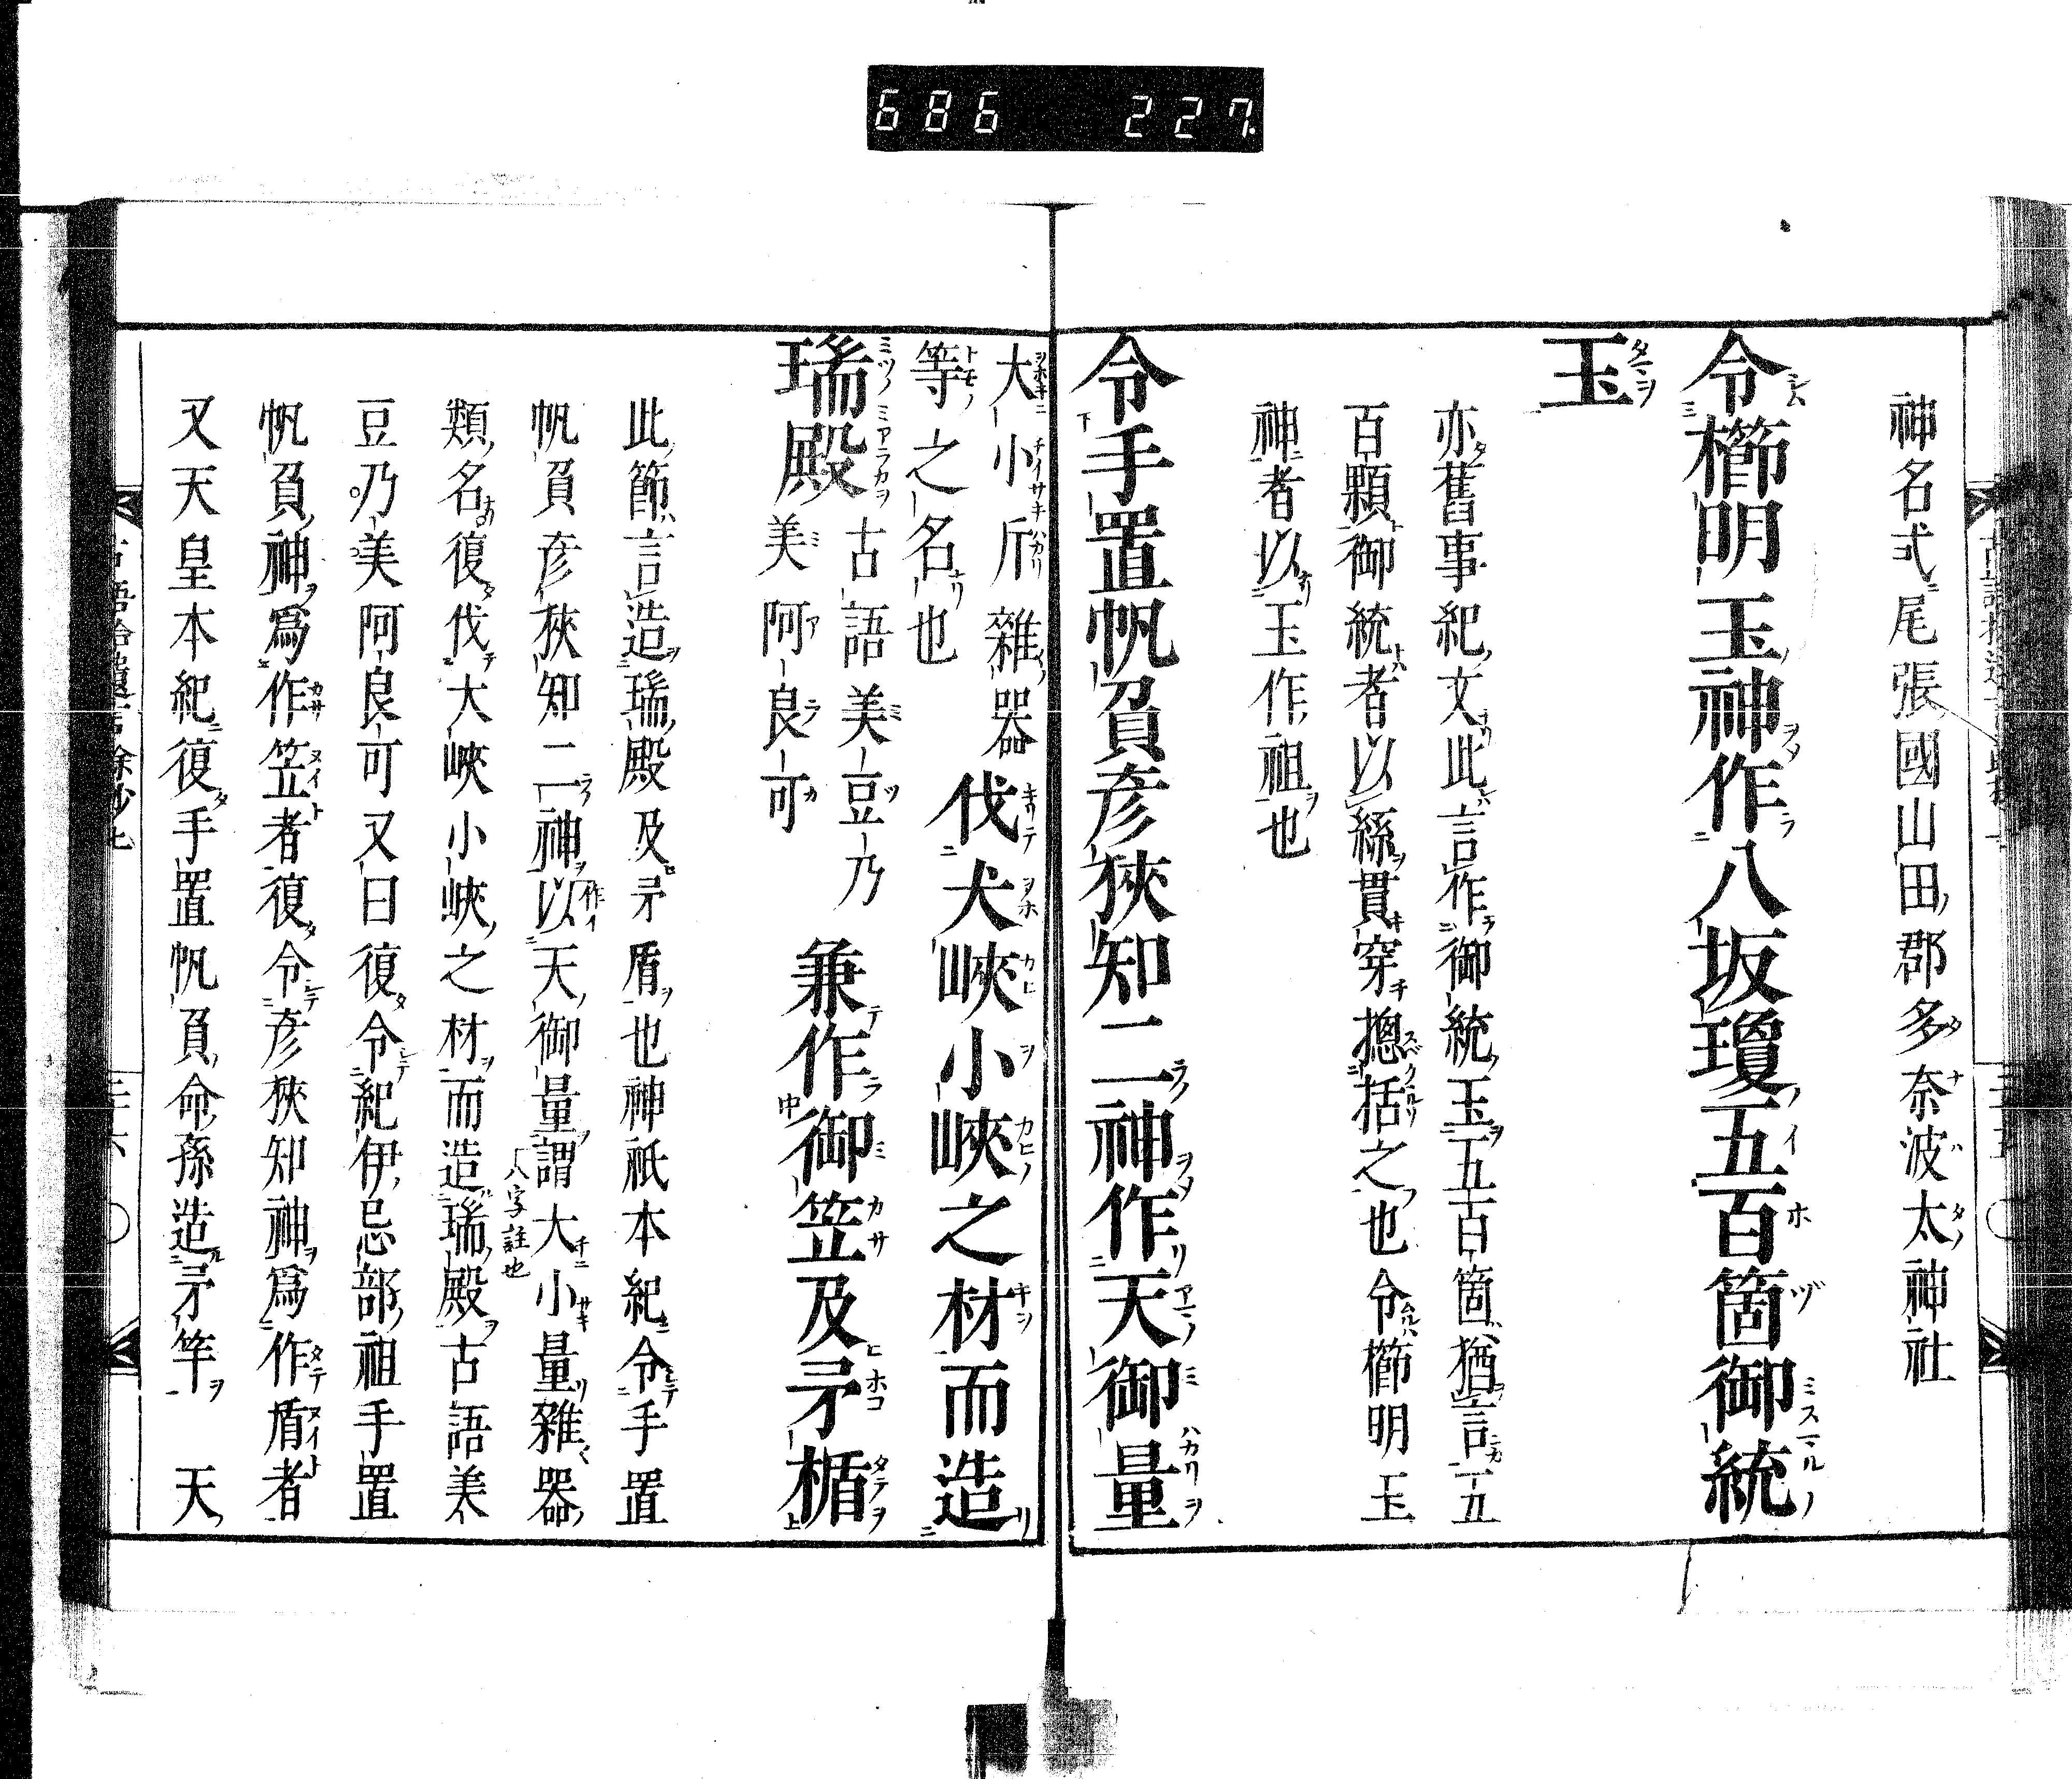 686 227
神名式尾張國山田郡多奈波太神社
令櫛明玉神作八坂瓊五百箇御統
玉
亦舊事紀文此言作御統玉五百箇猶言五
百顆御統者以絲貫穿摠括之也令櫛明玉
神者以玉作祖也
令手置帆負彦狹知二神作天御量
大小斤雜器
等之名也
伐大峽小峽之材而造
瑞殿
古語美豆乃
美阿良可
兼作御笠及矛楯
此節言造瑞殿及矛盾也神祇本紀令手置
帆負彦狹知二神以天御量謂大小量雜器
作イ
八字註也
類名復伐大峽小峽之材而造瑞殿古語美
豆乃美阿良可又曰復令紀伊忌部祖手置
帆負神爲作笠者復令彦狹知神爲作盾者
又天皇本紀復手置帆負命孫造矛竿 天